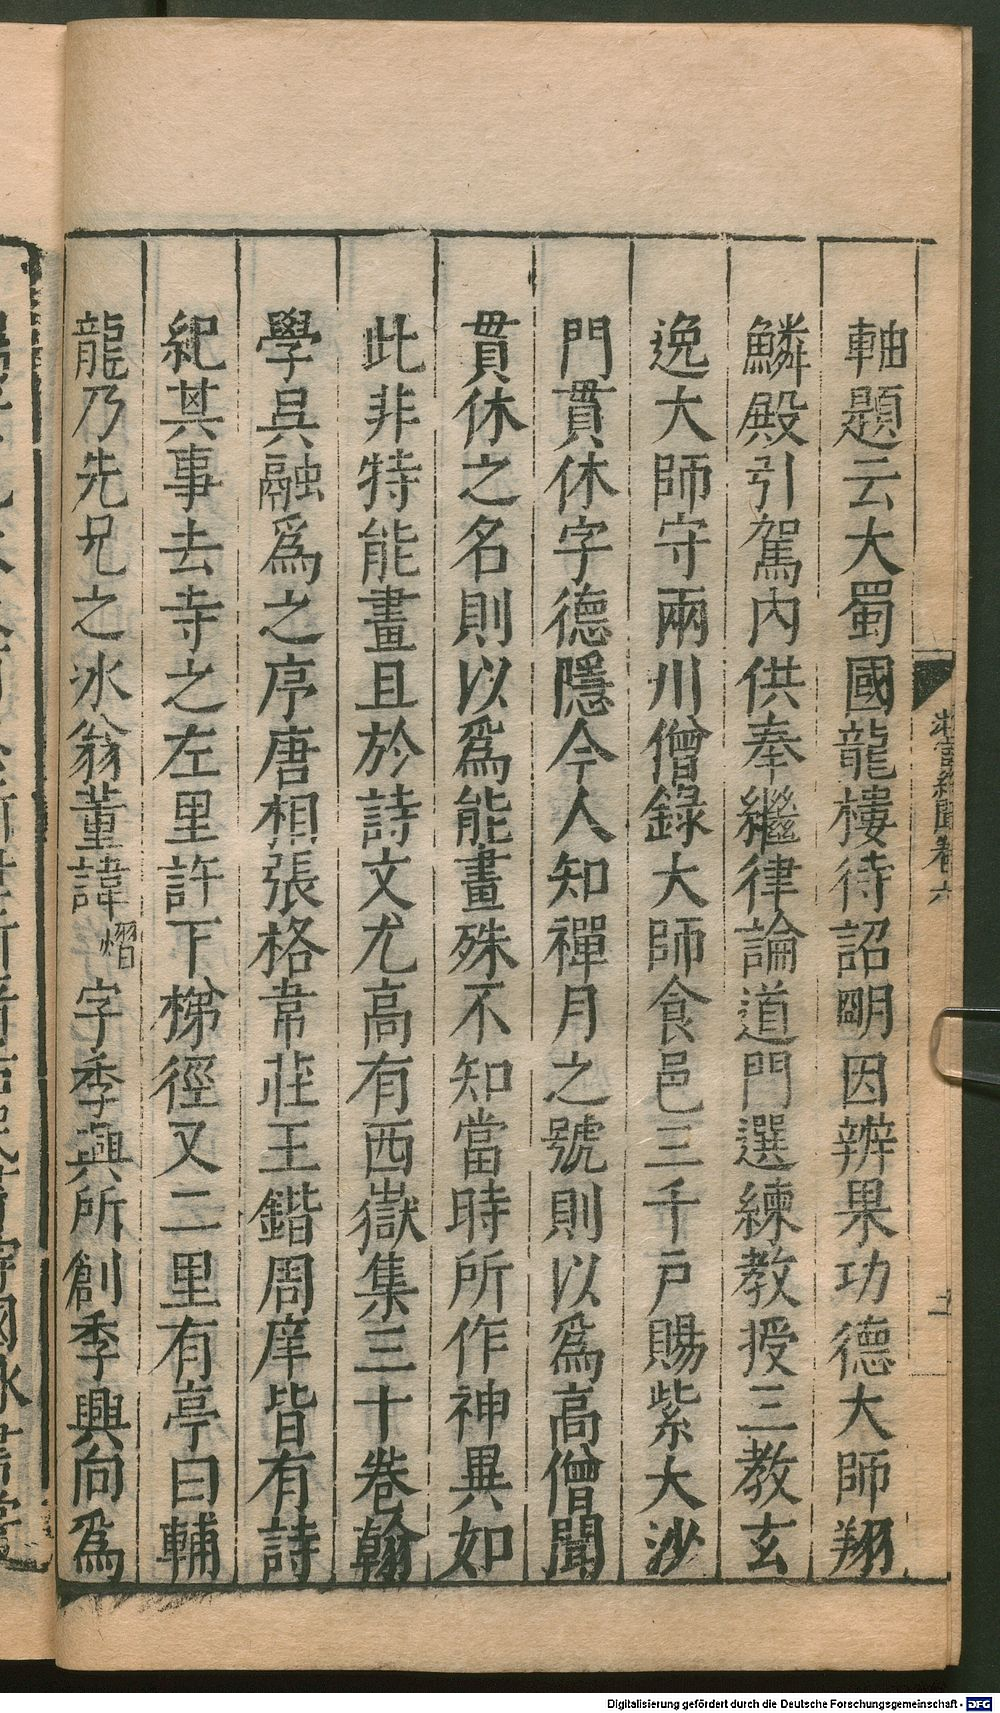 軸題云大蜀國龍樓待詔明因辨果功德大師翔
鱗殿引駕內供奉繼律論道門選練教授三教玄
逸大師守兩川僧錄大師食邑三千戶賜紫大沙
門貫休字德隱今人知禪月之號則以爲高僧聞
貫休之名則以爲能畫殊不知當時所作神異如
此非特能畫且於詩文尤高有西嶽集三十卷翰
學吳融爲之序唐相張格韋莊王鍇周庠皆有詩
紀其事去寺之左里許下梯徑又二里有亭曰輔
龍乃先兄之冰翁董諱熠字季興所創季興向爲
卷六
Digitalisierung gefördert durch die Deutsche Forschungsgemeinschaft - DFG